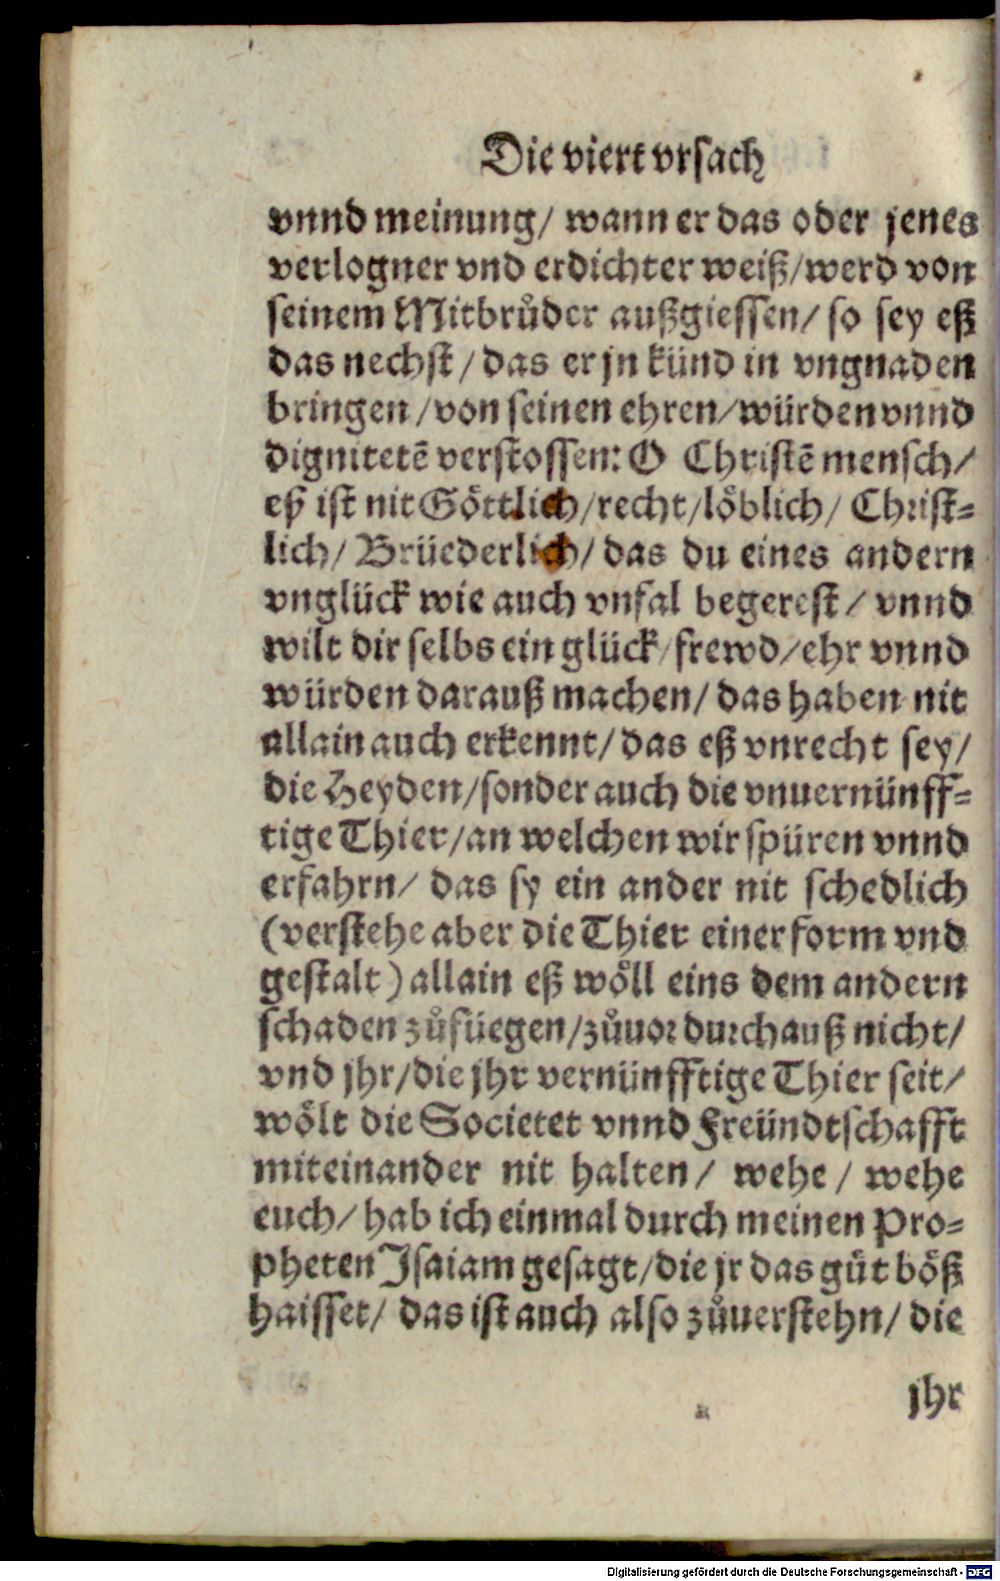 Die viert vrsach
vnnd meinung/ wann er das oder jenes
verlogner vnd erdichter weiß/werd von
seinem Mitbrůder außgiessen/ so sey eß
das nechst/ das er jn künd in vngnaden
bringen/von seinen ehren/würden vnnd
dignitetē verstossen: O Christē mensch/
eß ist nit Göttlich/recht/löblich/ Christ⸗
lich/ Brüederlich/ das du eines andern
vnglück wie auch vnfal begerest/ vnnd
wilt dir selbs ein glück/frewd/ehr vnnd
würden darauß machen/ das haben nit
allain auch erkennt/ das eß vnrecht sey/
die Heyden/sonder auch die vnuernünff⸗
tige Thier/an welchen wir spüren vnnd
erfahrn/ das sy ein ander nit schedlich
(verstehe aber die Thier einer form vnd
gestalt) allain eß wöll eins dem andern
schaden zůfüegen/zůuor durchauß nicht/
vnd jhr/die jhr vernünfftige Thier seit/
wölt die Societet vnnd Freündtschafft
miteinander nit halten/ wehe/ wehe
euch/ hab ich einmal durch meinen Pro⸗
pheten Isaiam gesagt/die jr das gůt böß
haisset/ das ist auch also zůuerstehn/ die
jhr
Digitalisierung gefördert durch die Deutsche Forschungsgemeinschaft - DFG